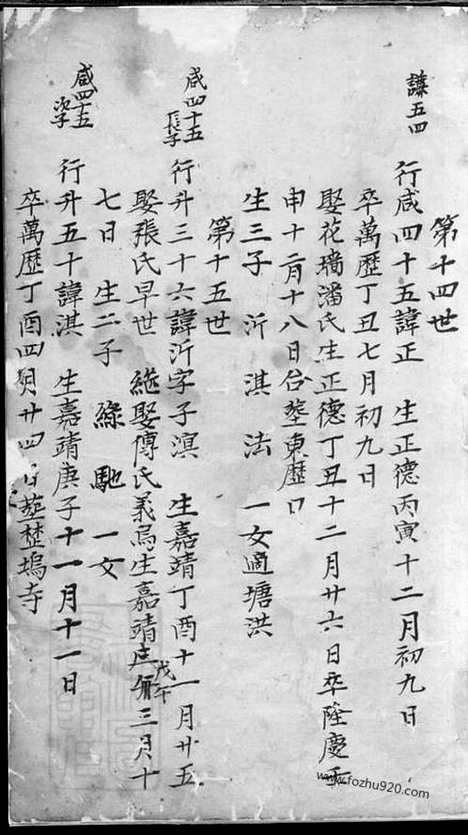 第十四世
謙五四
行咸四十五諱正 生正德丙寅十二月初九日
卒萬歷丁丑七月初九日
娶花墻潘氏生正德丁丑十二月廿六日卒隆慶壬
申十二月十八日合塟東歷口
生三子 沂 淇 法 一女適塘洪
第十五世
咸四十五
長子
行升三十六諱沂字子溟 生嘉靖丁酉十一月廿五
娶張氏早世 繼娶傅氏義烏生嘉靖戊午三月十
七日 生二子 綠 馳 一女
咸四十五
次子
行升五十諱淇 生嘉靖庚子十一月十一日
卒萬歷丁酉四月廿四日塟塢寺
www.fozhu920.com